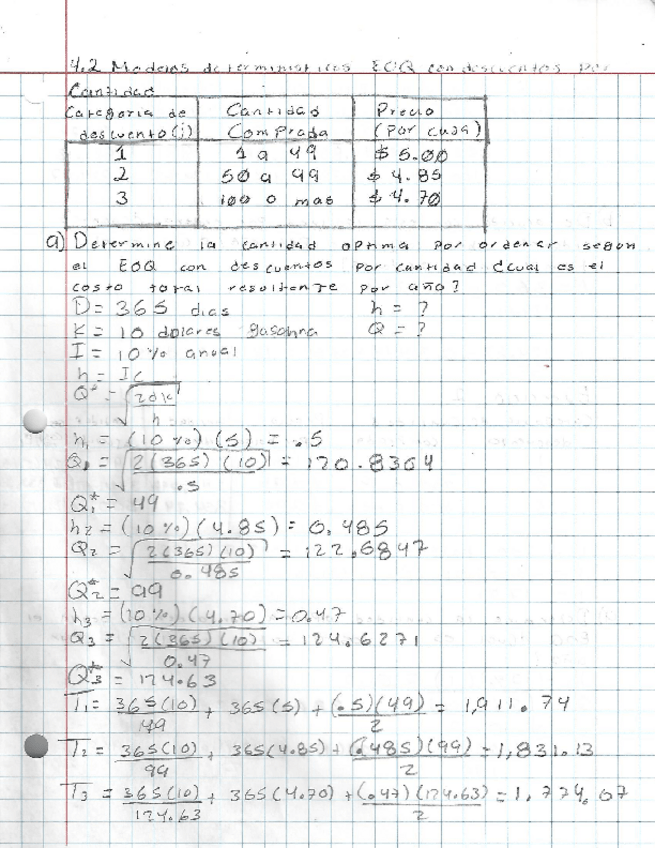 4.2 Modelos deterministicos EOQ con descuentos por
Cantidad
Categoria de descuento (i) Cantidad Comprada Precio (Por caja)
1 1 a 49 $ 5.00
2 50 a 99 $ 4.85
3 100 o mas $ 4.70
a) Determine la cantidad optima por ordenar segun
el EOQ con descuentos por cantidad ¿cual es el
costo total resultante por año?
D = 365 dias h = ?
K = 10 dolares gasolina Q = ?
I = 10% anual
h = Ic
Q* = √2DK / h
h1 = (10 %) (5) = .5
Q1 = √2(365)(10) / .5 = 120.8304
Q1* = 49
h2 = (10 %) (4.85) = 0.485
Q2 = √2(365)(10) / 0.485 = 122.6847
Q2* = 99
h3 = (10 %) (4.70) = 0.47
Q3 = √2(365)(10) / 0.47 = 124.6271
Q3* = 124.63
T1 = 365(10) / 49 + 365(5) + (.5)(49) / 2 = 1,911.74
T2 = 365(10) / 99 + 365(4.85) + (.485)(99) / 2 = 1,831.13
T3 = 365(10) / 124.63 + 365(4.70) + (.47)(124.63) / 2 = 1,774.07